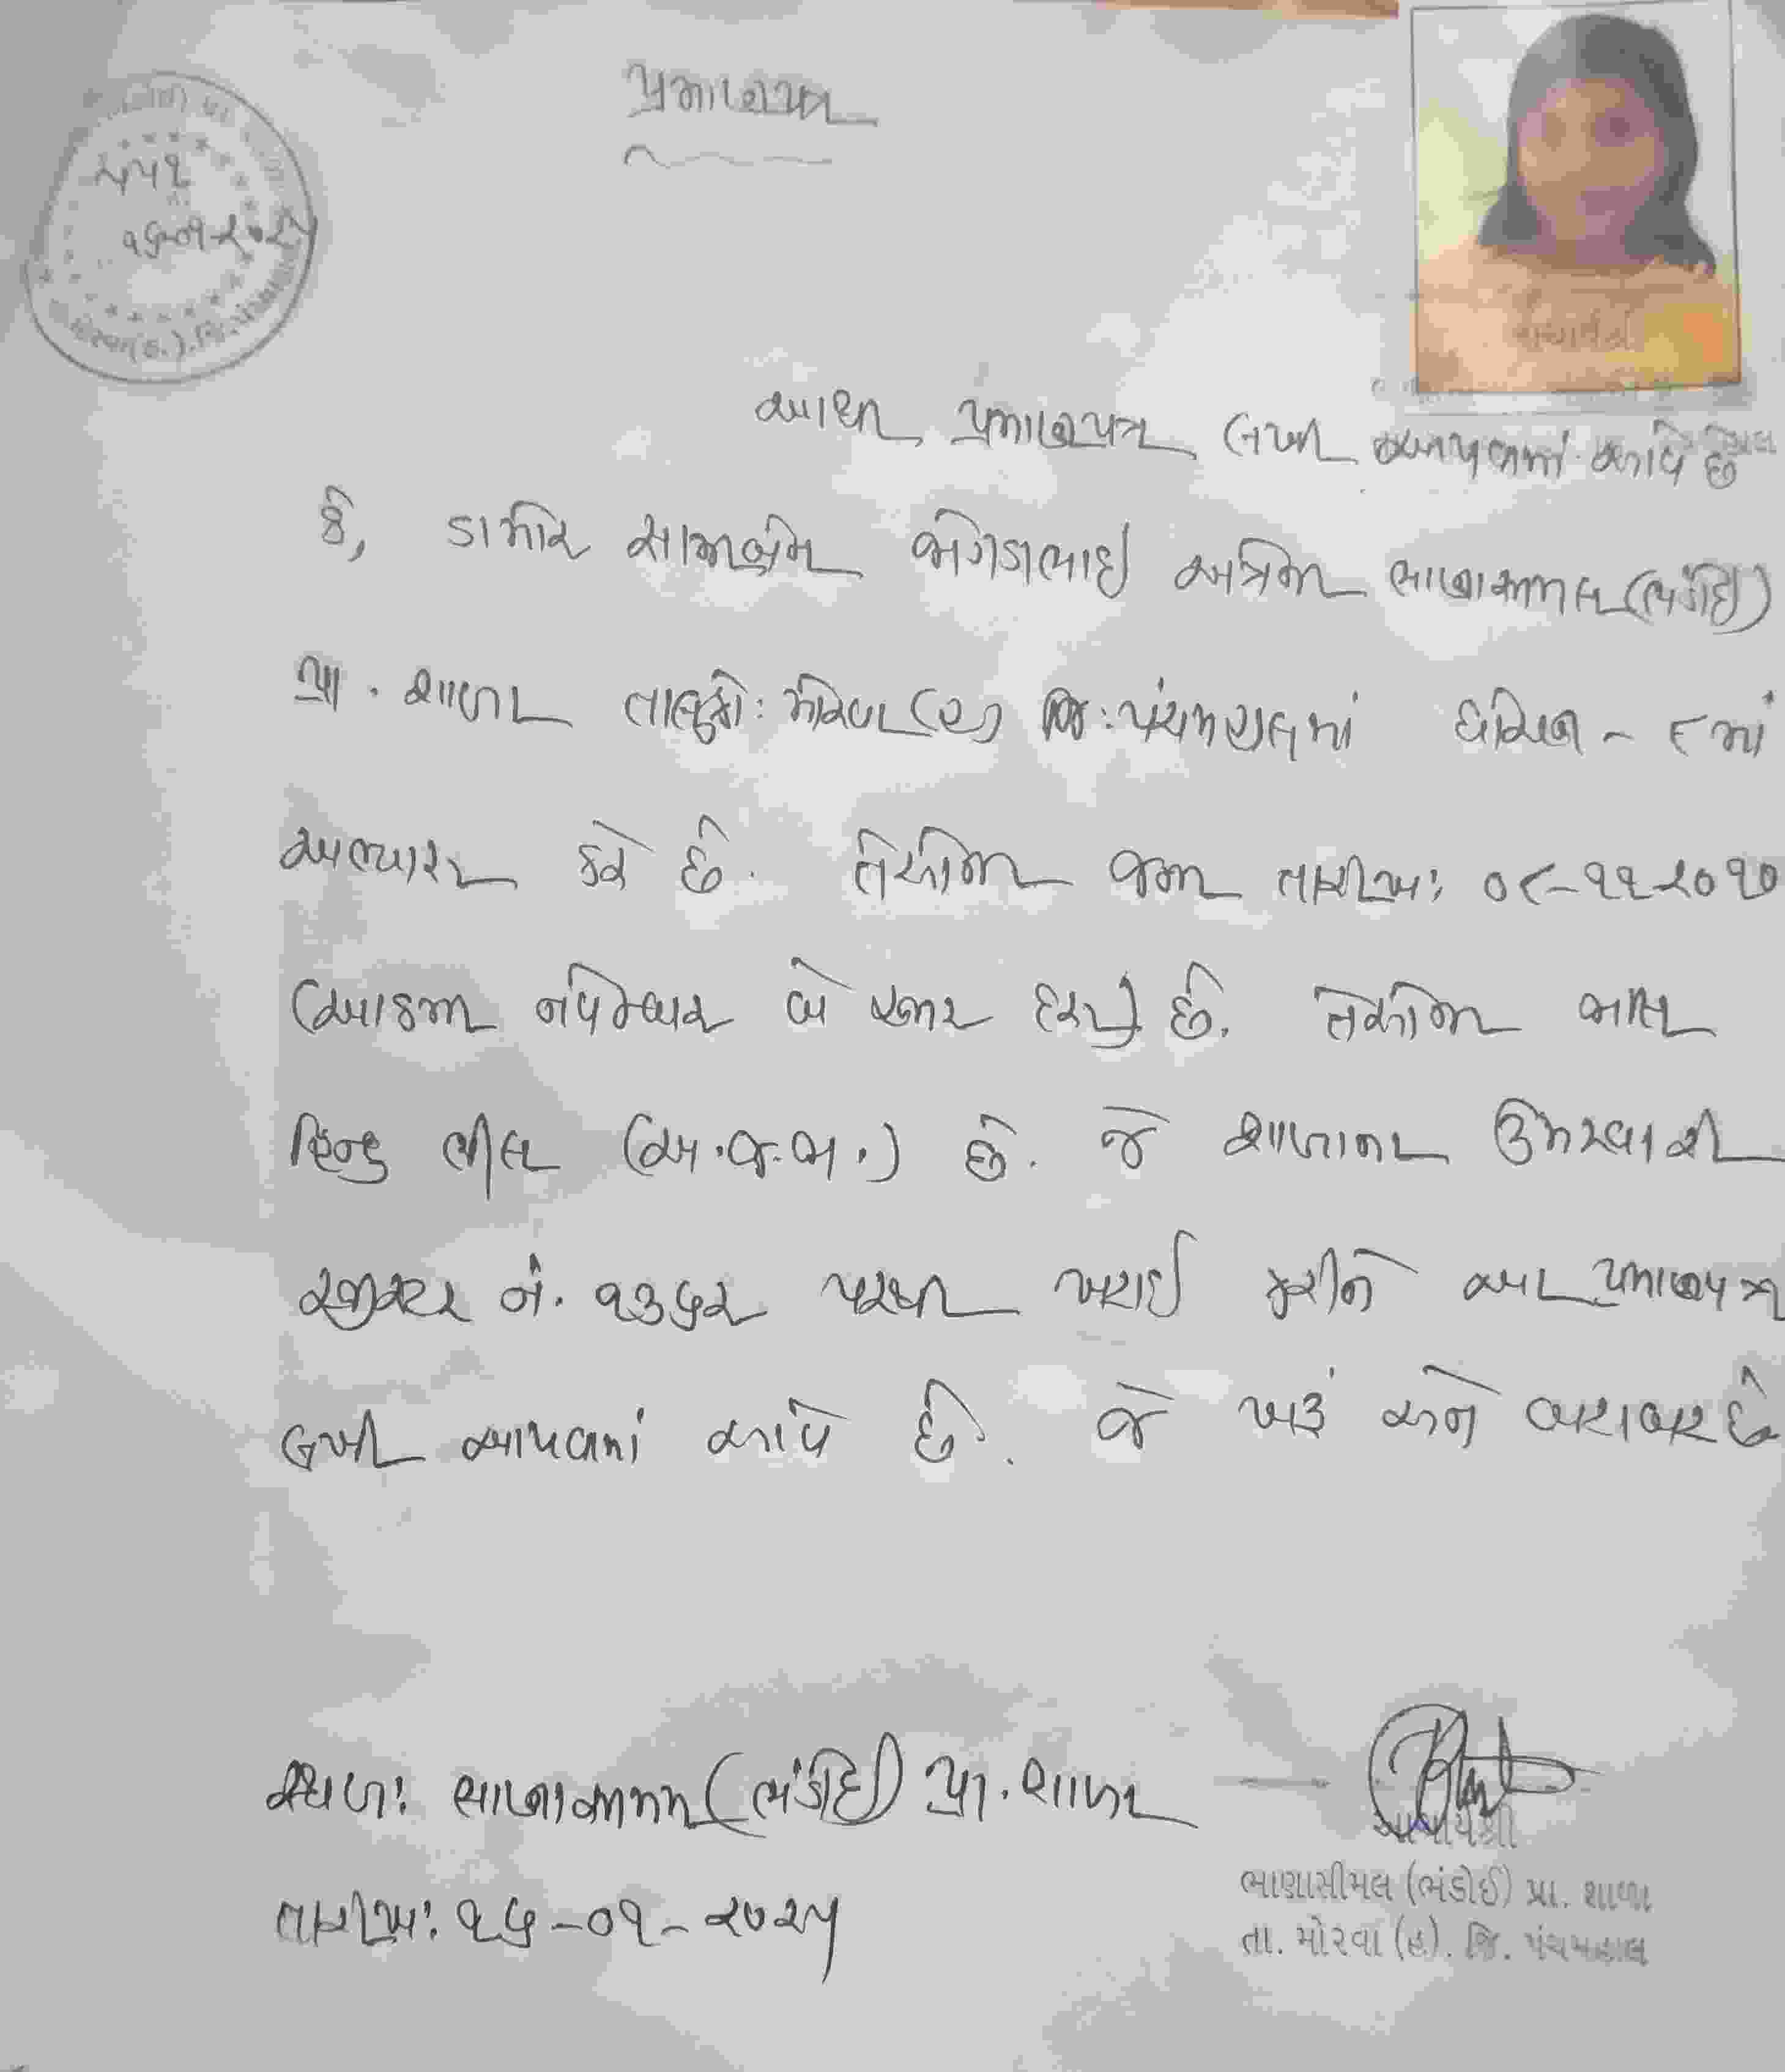 પ્રમાણપત્ર
૨૫૧
૧૬-૦૧-૨૦૨૫
આથી પ્રમાણપત્ર લખી આપવામાં આવે છે
કે, ડામોર ભાઇ અત્રેની ભાણાસીમલ (ભંડોઇ)
પ્રા. શાળા તાલુકો: મોરવા (હ) જિ: પંચમહાલમાં ધોરણ - ૮ માં
અભ્યાસ કરે છે. તેઓની જન્મ તારીખ: ૦૮-૧૧-૨૦૧૦
(આઠમી નવેમ્બર બે હજાર દસ) છે. તેઓની જાતિ
હિન્દુ ભીલ (અ.જ.જા.) છે. જે શાળાના ઉમરવારી
રજીસ્ટર નં. ૧૩૬૨ પરથી ખરાઇ કરીને આ પ્રમાણપત્ર
લખી આપવામાં આવે છે. જે ખરૂં અને બરાબર છે
સ્થળ: ભાણાસીમલ (ભંડોઇ) પ્રા. શાળા
તારીખ: ૧૬-૦૧-૨૦૨૫
આચાર્યશ્રી
ભાણાસીમલ (ભંડોઈ) પ્રા. શાળા
તા. મોરવા (હ). જિ. પંચમહાલ